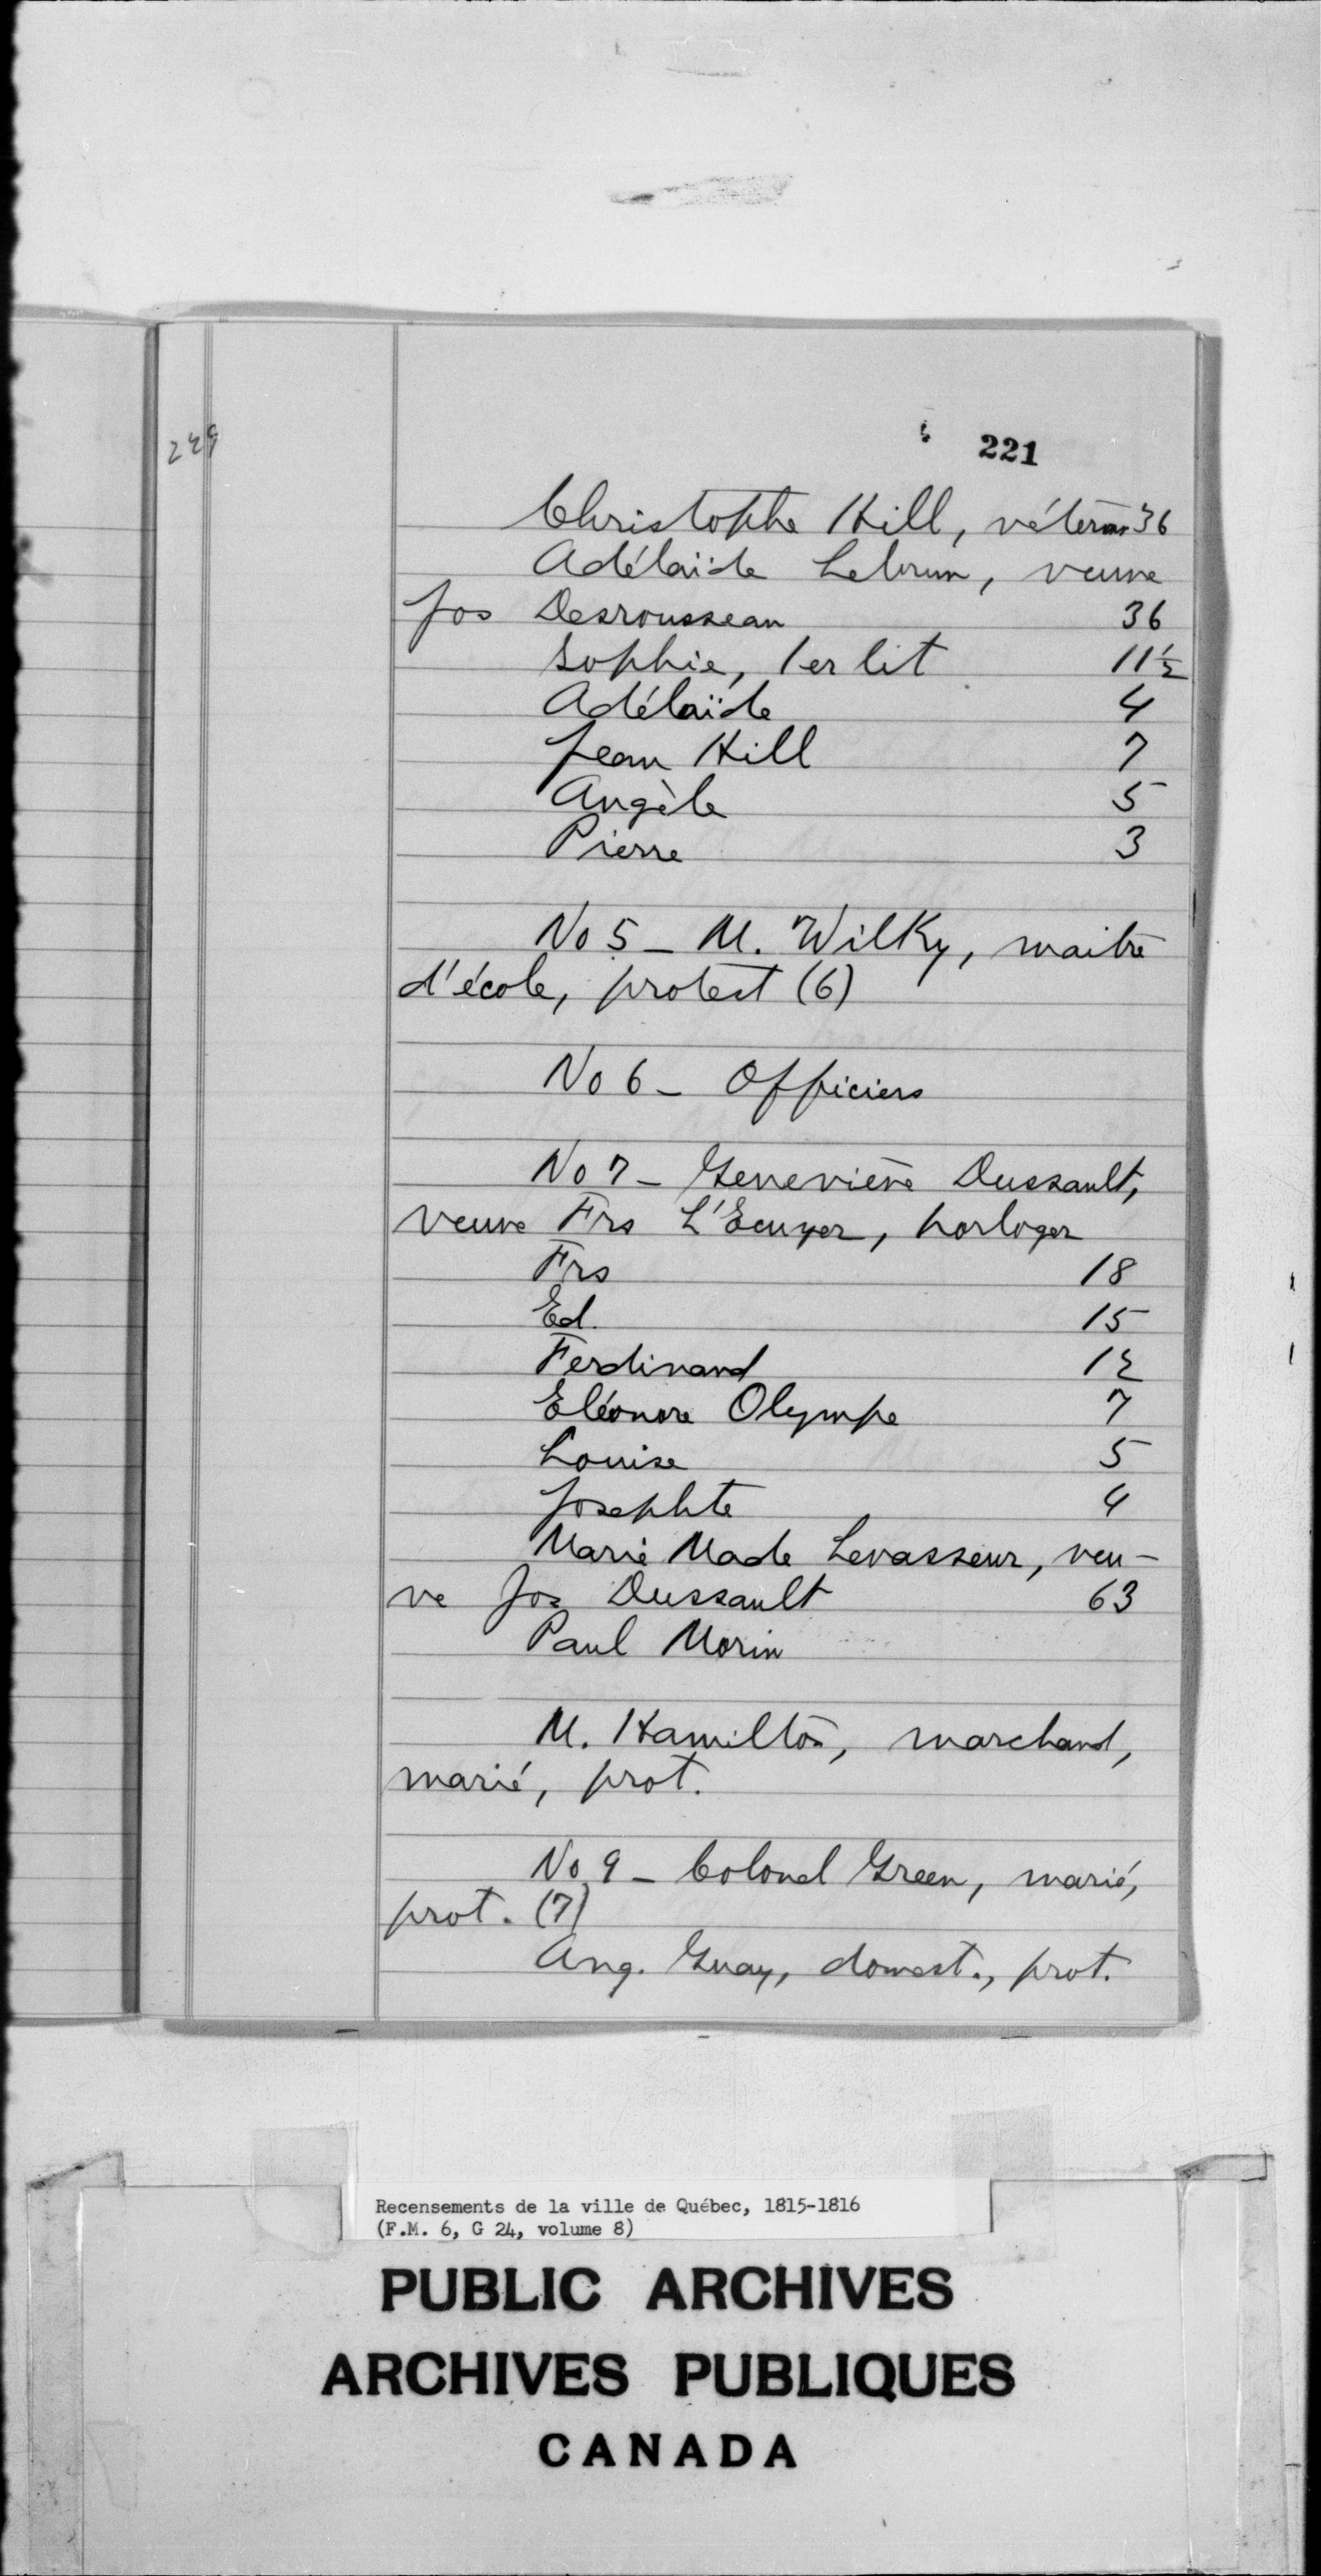 229
221
Christophe Hill, vétéran 36
Adélaïde Lebrun, veuve
Jos Desrousseau 36
Sophie, 1er lit 11½
Adélaïde 4
Jean Hill 7
Angèle 5
Pierre 3
No 5 - M. Wilky, maitre
d'école, protest (6)
No 6 - Officiers
No 7 - Geneviève Dussault,
veuve Frs L'Ecuyer, horloger
Frs 18
Ed. 15
Ferdinand 12
Eléonore Olympe 7
Louise 5
Josephte 4
Marie Made Levasseur, veu-
ve Jos Dussault 63
Paul Morin
M. Hamilton, marchand,
marié, prot.
No 9 - Colonel Green, marié,
prot. (7)
Ang. Guay, domest., prot.
Recensements de la ville de Québec, 1815-1816
(F.M. 6, G 24, volume 8)
PUBLIC ARCHIVES
ARCHIVES PUBLIQUES
CANADA